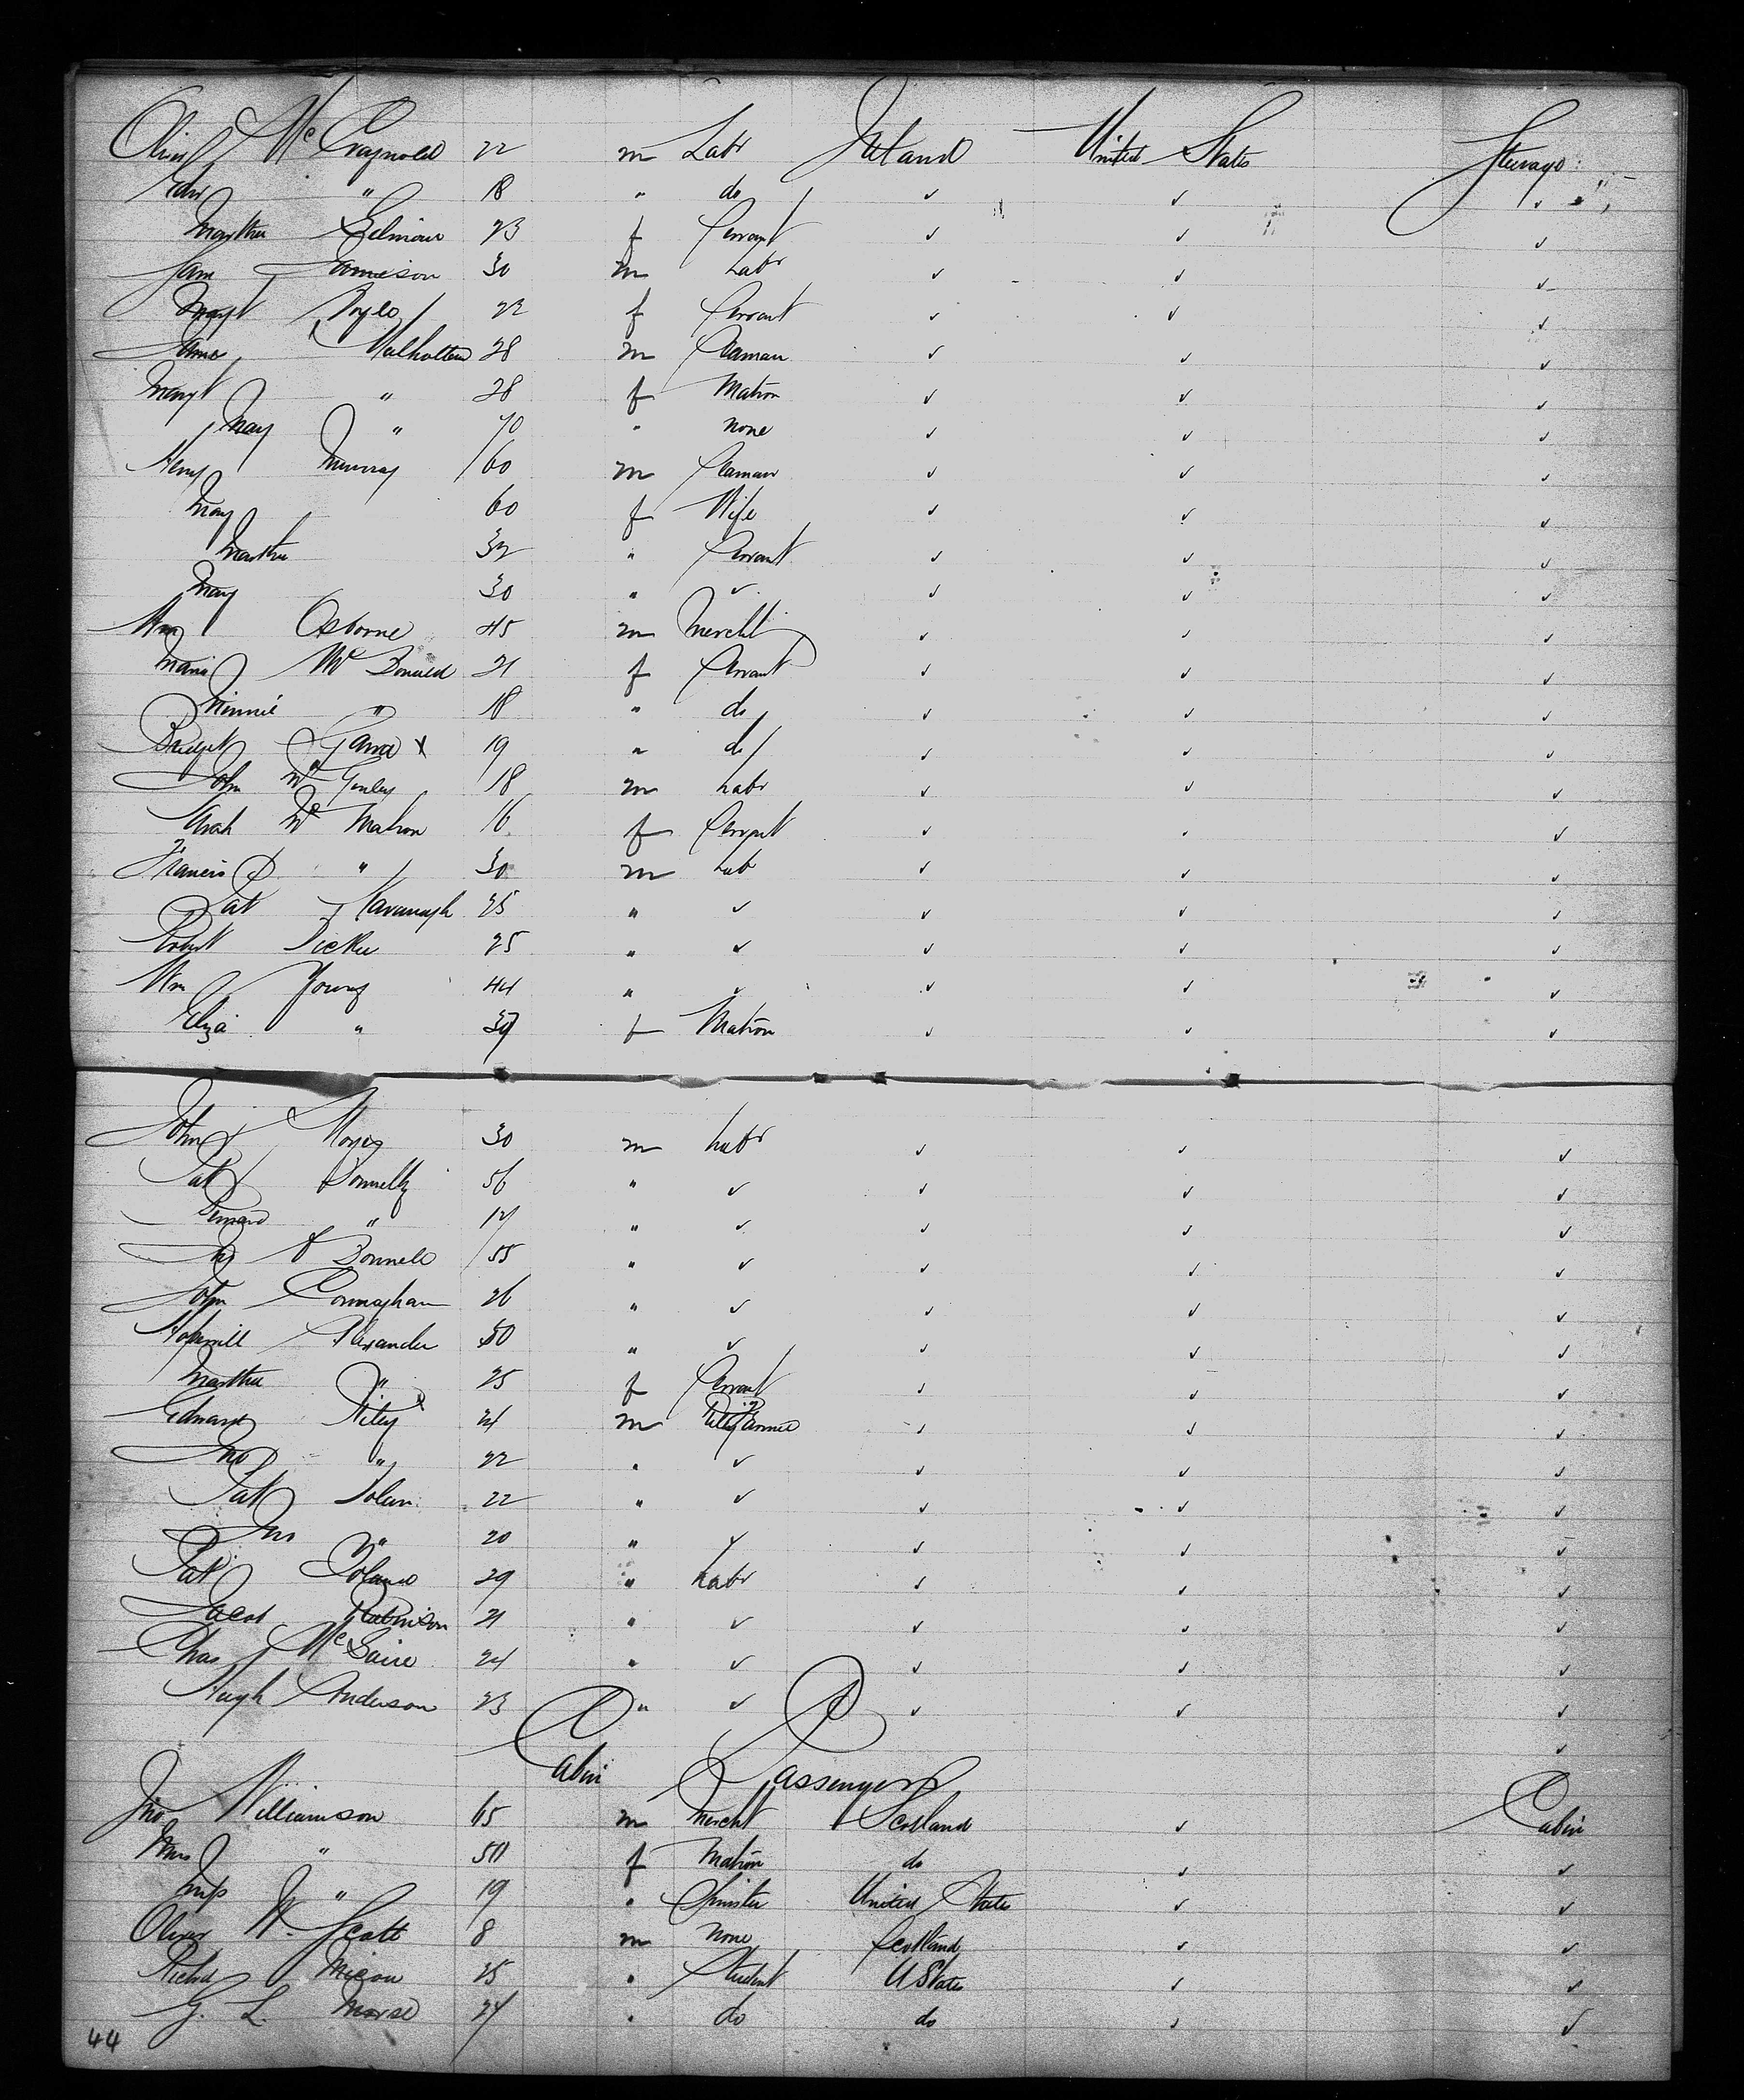 Oliver Mc Reynold 22 m Labr Ireland United States Steerage
Edw " 18 " do ✓ ✓ ✓
Martha Gelmour 23 f Servant ✓ ✓ ✓
Sam Jamieson 30 m Labr ✓ ✓ ✓
Margt Boyle 22 f Servant ✓ ✓ ✓
James Mulholland 28 m Seaman ✓ ✓ ✓
Margt " 28 f Matron ✓ ✓ ✓
Mary " 70 " none ✓ ✓ ✓
Henry Murray 60 m Seaman ✓ ✓ ✓
Mary 60 f Wife ✓ ✓ ✓
Martha 32 " Servant ✓ ✓ ✓
Mary 30 " ✓ ✓ ✓ ✓
Wm Osborne 45 m Mercht ✓ ✓ ✓
Maria Mc Donald 21 f Servant ✓ ✓ ✓
Minnie " 18 " do ✓ ✓ ✓
Bridget Gara x 19 " do ✓ ✓ ✓
John Mc Ginley 18 m Labr ✓ ✓ ✓
Sarah Mc Mahon 16 f Servant ✓ ✓ ✓
Francis " 30 m Lab ✓ ✓ ✓
Pat Kavanagh 25 " ✓ ✓ ✓ ✓
Robert Dickie 25 " ✓ ✓ ✓ ✓
Wm Young 44 " ✓ ✓ ✓ ✓
Eliza " f Matron ✓ ✓ ✓
John 30 m Labr ✓ ✓ ✓
Pat Donnelly 56 " ✓ ✓ ✓ ✓
Bernard " " ✓ ✓ ✓ ✓
O Donnell 55 " ✓ ✓ ✓ ✓
John 26 " ✓ ✓ ✓ ✓
Alexander 50 " ✓ ✓ ✓ ✓
Martha " 25 f Servant ✓ ✓ ✓
Edward Riley 21 m ✓ ✓ ✓
Jno " 22 " ✓ ✓ ✓ ✓
Pat Dolan 22 " ✓ ✓ ✓ ✓
Jno " 20 " ✓ ✓ ✓ ✓
Pat 29 " Labr ✓ ✓ ✓
Jacob Robinson 21 " ✓ ✓ ✓ ✓
Chas Mc 24 " ✓ ✓ ✓ ✓
Hugh Anderson 23 " ✓ ✓ ✓ ✓
Cabin Passengers ✓
Jno Williamson 65 m Mercht Scotland ✓ Cabin
Mrs " 50 f Matron do ✓ ✓
Miss " 19 " Spinster United States ✓ ✓
Oliver W. Scott 8 m None Scotland ✓ ✓
Richd Micou 25 " Student U States ✓ ✓
G. L. Morse 24 " do do ✓ ✓
44